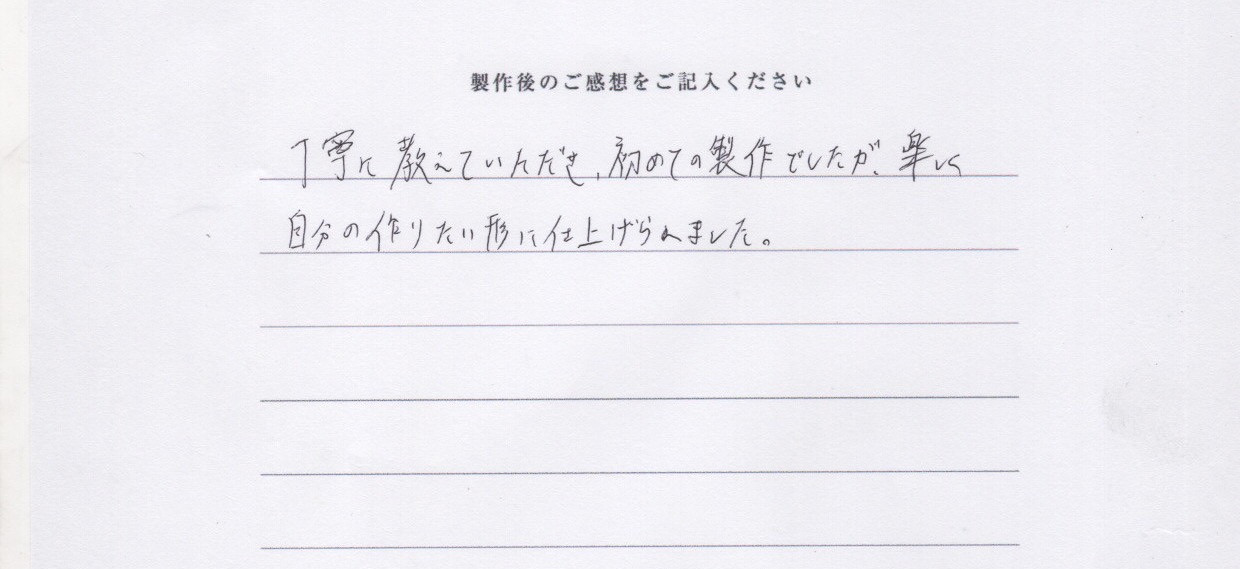 製作後のご感想をご記入ください
丁寧に教えていただき、初めての製作でしたが、楽しく
自分の作りたい形に仕上げられました。